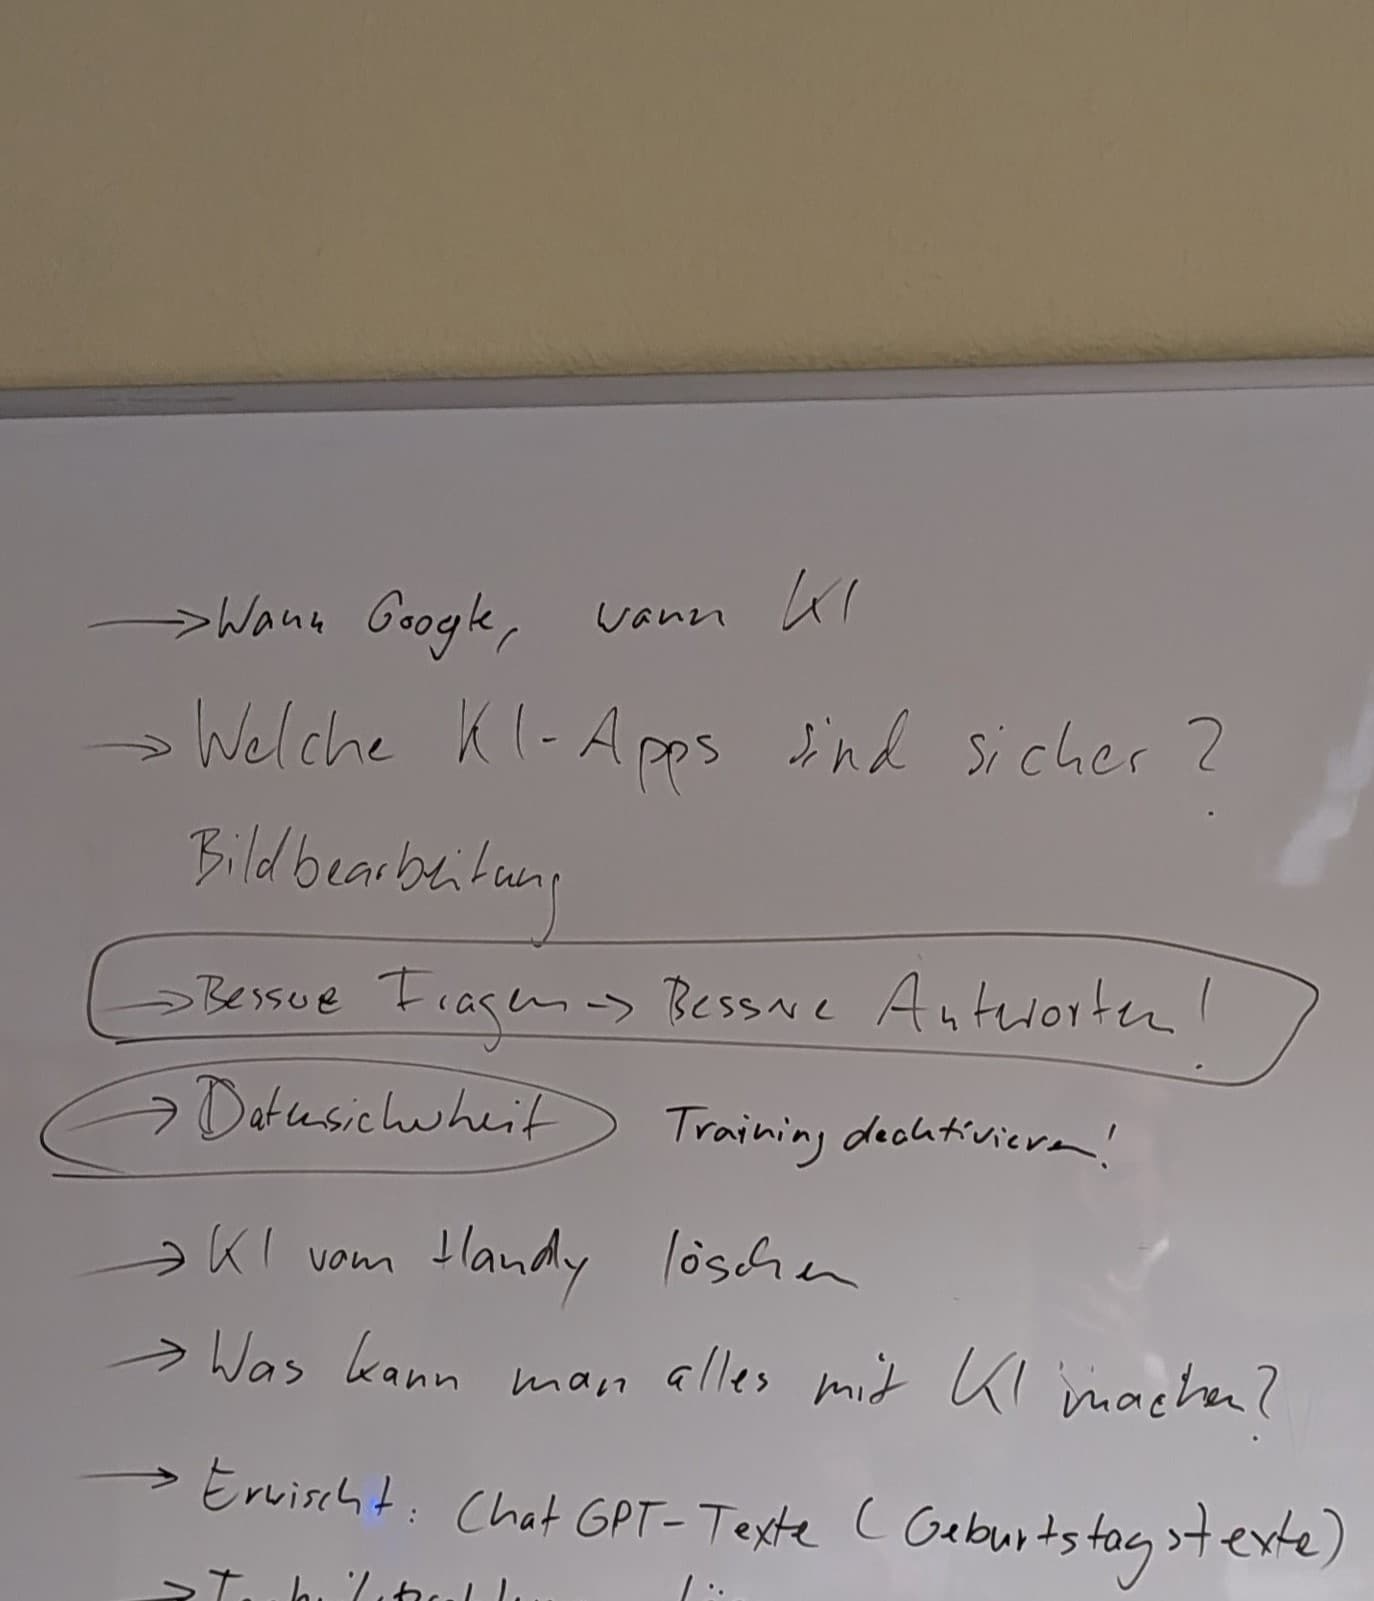 → Wann Google, wann KI
→ Welche KI-Apps sind sicher?
Bildbearbeitung
→ Bessere Fragen → Bessere Antworten!
→ Datensicherheit Training deaktivieren!
→ KI vom Handy löschen
→ Was kann man alles mit KI machen?
→ Erwischt: ChatGPT-Texte (Geburtstagstexte)